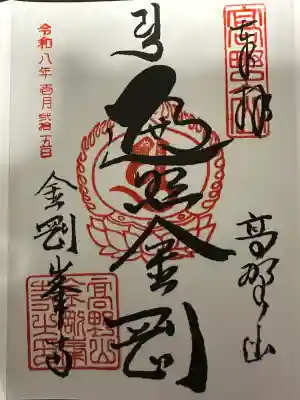 奉拝
高野山
遍照金剛
令和八年壱月弐拾五日
金剛峯寺
高野山
金剛峯
寺之印